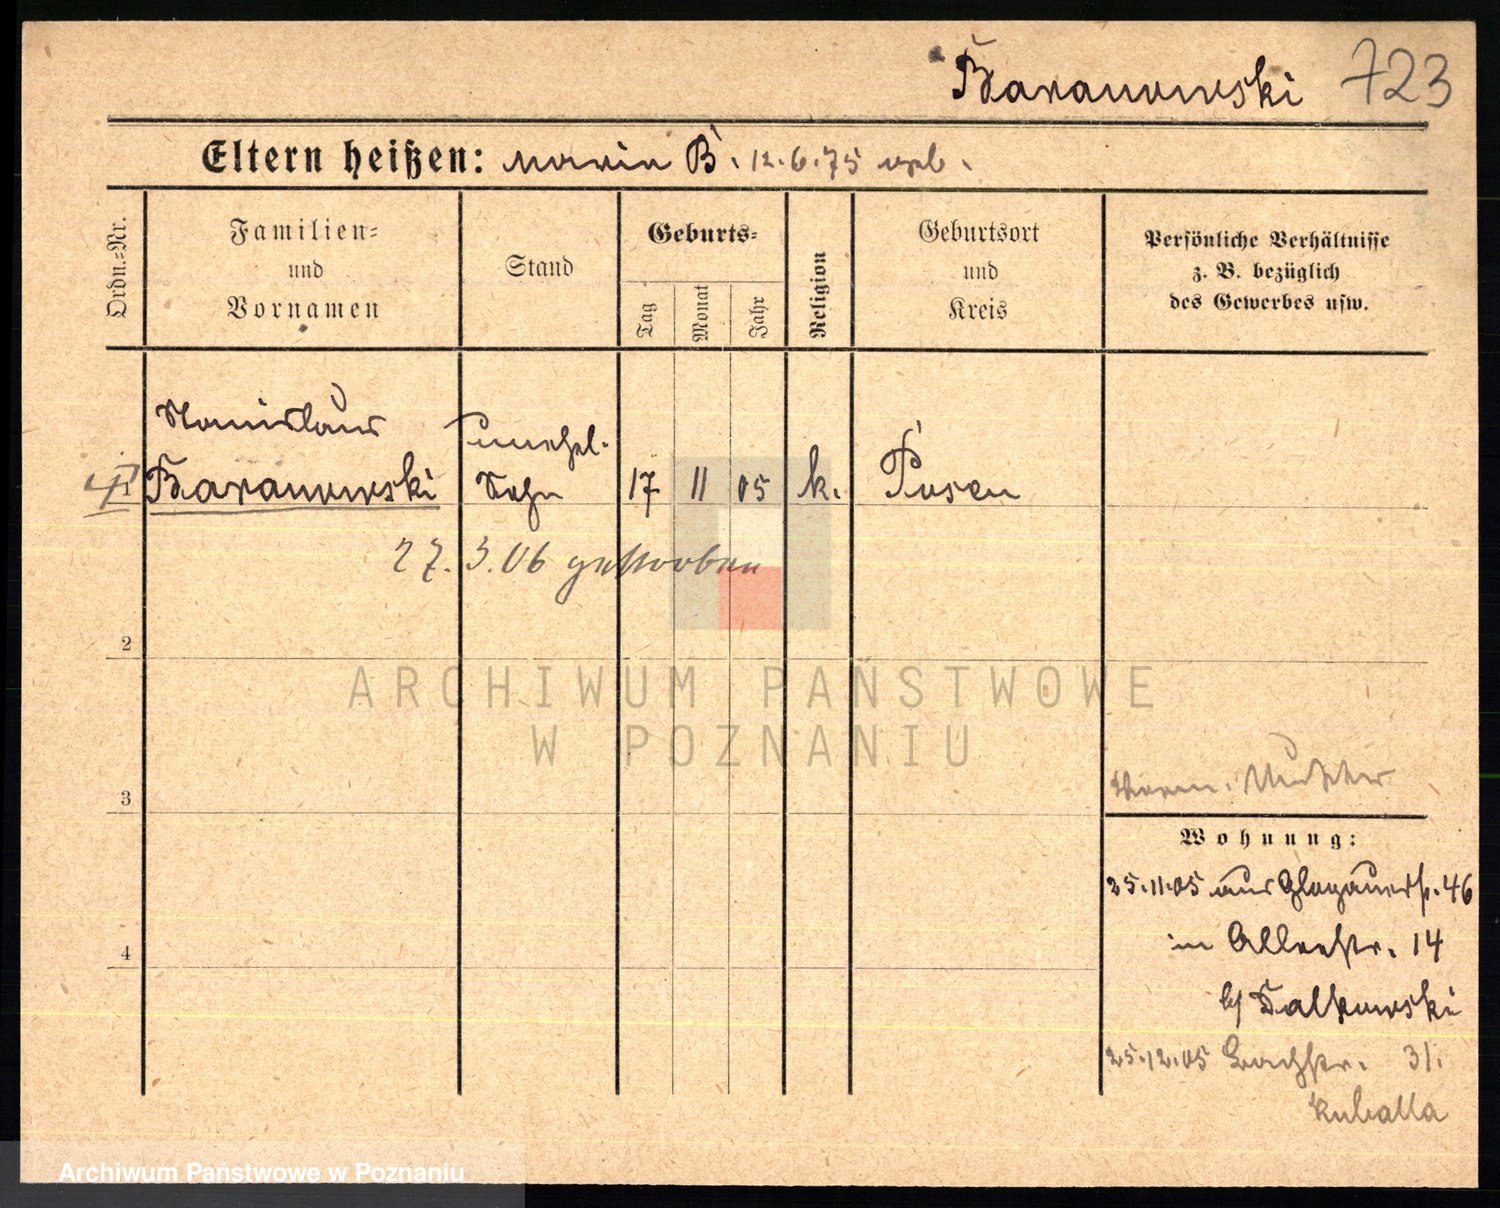 Baranowski 723
Eltern heißen: Maria B. 12.6.75 geb.
Ordn.-Nr.
Familien-
und
Vornamen
Stand
Geburts-
Tag
Monat
Jahr
Religion
Geburtsort
und
Kreis
Persönliche Verhältnisse
z. B. bezüglich
des Gewerbes usw.
Stanislaus unehel.
1 Baranowski Sohn 17 11 05 k. Posen
27.3.06 gestorben
2
ARCHIWUM PAŃSTWOWE
W POZNANIU
3
Mutter
Wohnung:
25.11.05 aus Glogauerstr. 46
4
in Alleestr. 14
bei Dalkowski
25.12.05 Bachstr. 31.
Kuballa
Archiwum Państwowe w Poznaniu